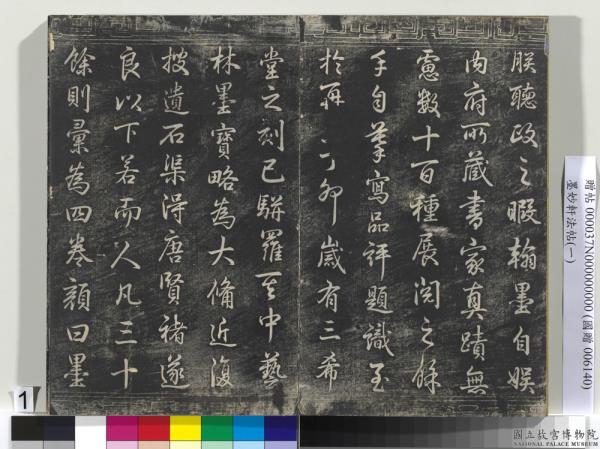 朕聽政之暇翰墨自娛
內府所藏書家真蹟無
慮數十百種展閱之餘
手自摹寫品評題識至
於再丁卯歲有三希
堂之刻已駢羅其中藝
林墨寶略為大備近復
搜遺石渠得唐賢褚遂
良以下若而人凡三十
餘則彙為四卷顏曰墨
贈帖 000037N000000000 (國贈 006140)
墨妙軒法帖(一)
1
國立故宮博物院
NATIONAL PALACE MUSEUM